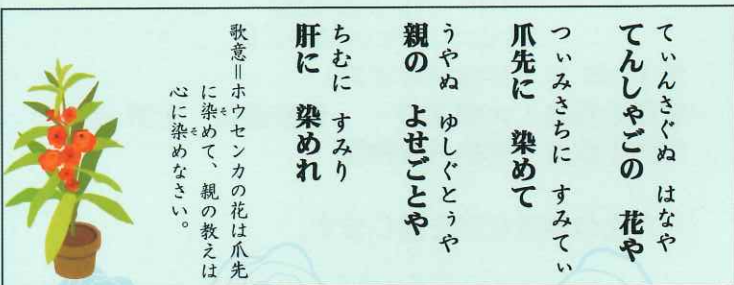 てぃんさぐぬ はなや
てんしゃごの 花や
つぃみさちに すみてぃ
爪先に 染めて
うやぬ ゆしぐとぅや
親の よせごとや
ちむに すみり
肝に 染めれ
歌意＝ホウセンカの花は爪先
に染めて、親の教えは
心に染めなさい。
そ
そ